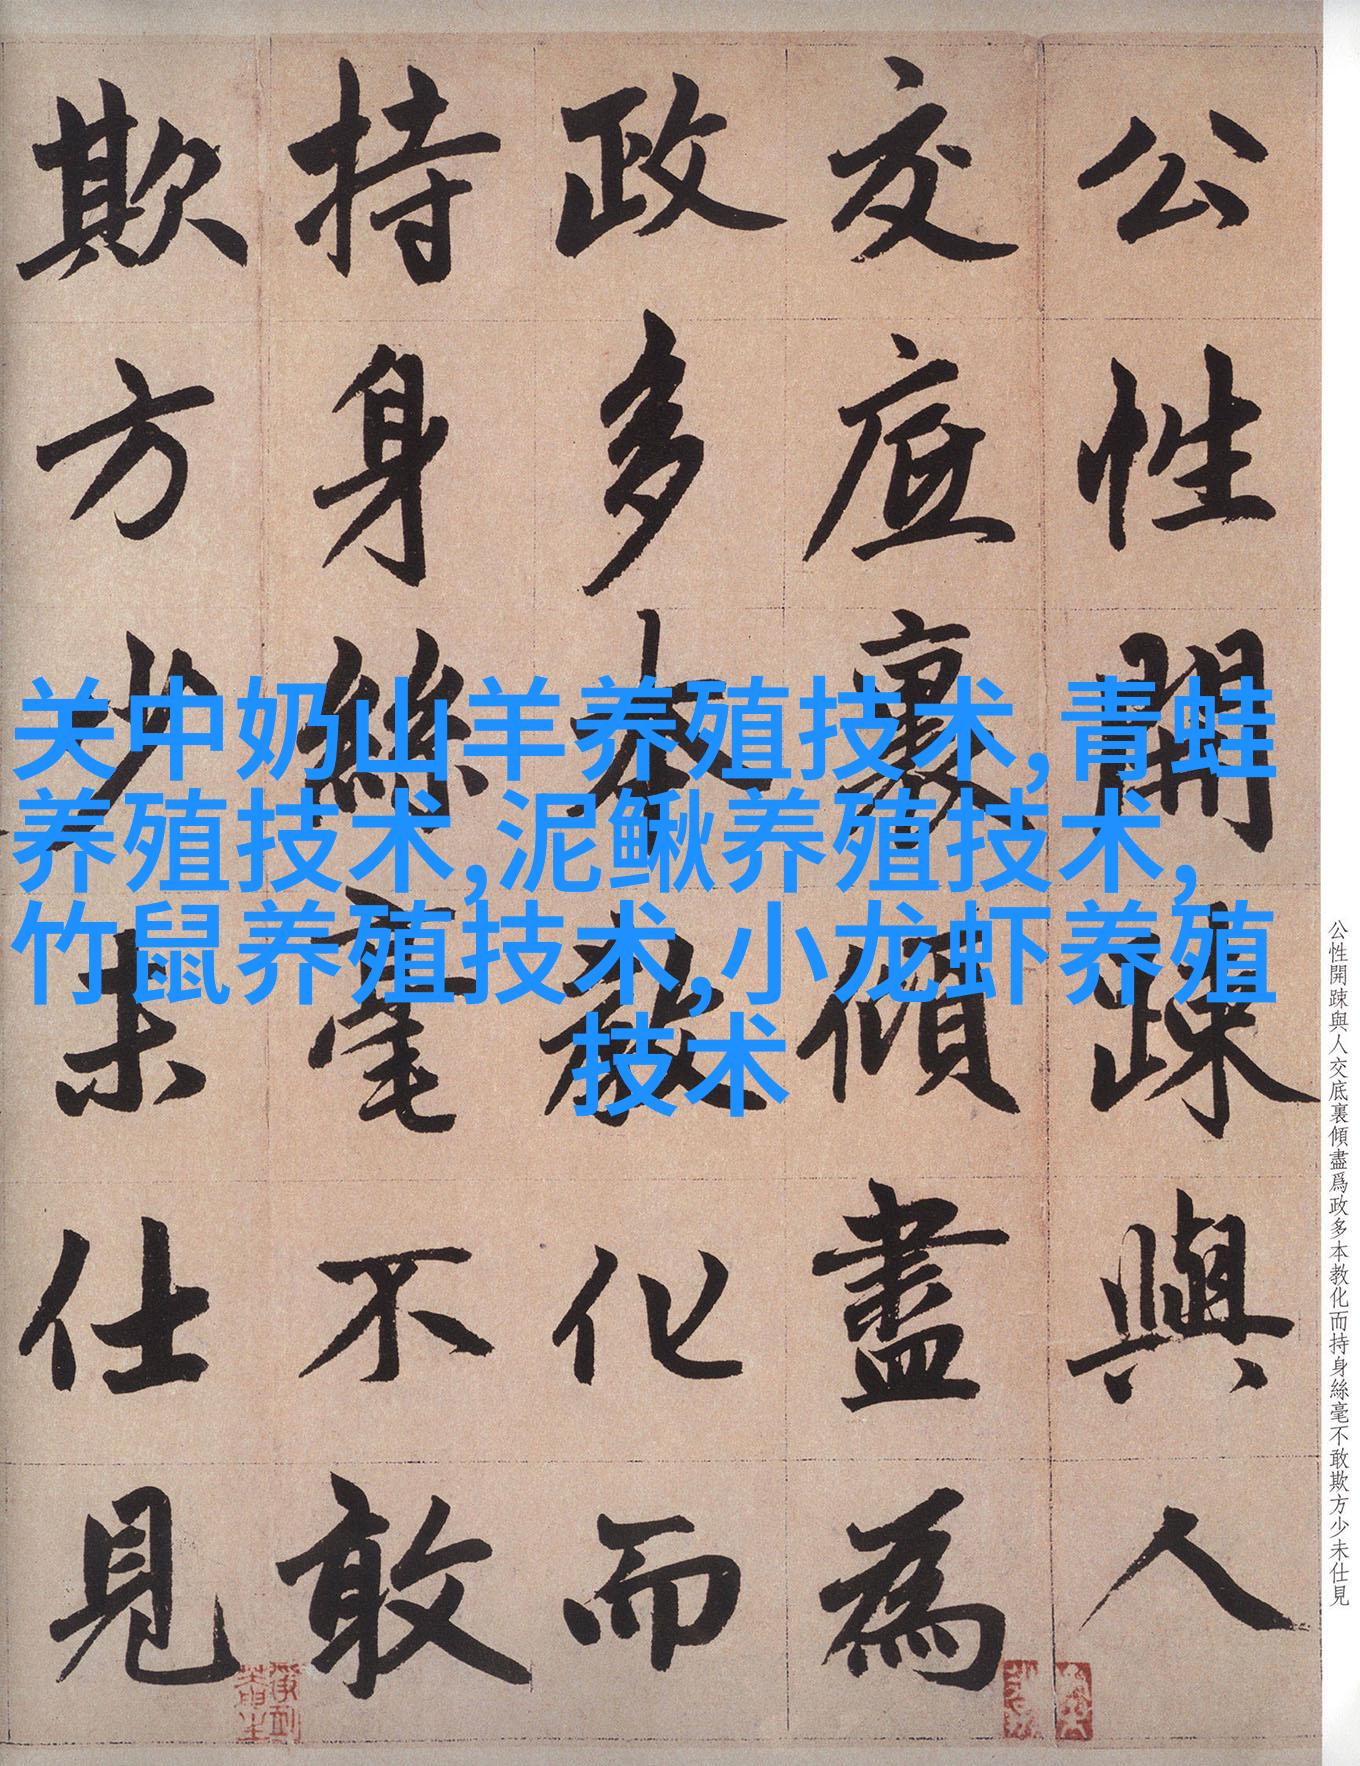 公性開踈與人
交底裏傾盡為
政多本教化而
持身絲毫不敢
欺方少未仕見
关中奶山羊养殖技术,青蛙
养殖技术,泥鳅养殖技术,
竹鼠养殖技术,小龙虾养殖
技术
公性開踈與人交底裏傾盡爲政多本教化而持身絲毫不敢欺方少未仕見